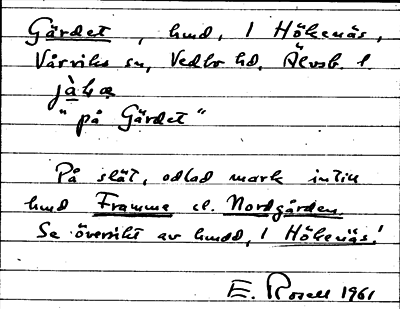 Gärdet, hmd, 1 Hökenäs,
Vårviks sn, Vedbo hd, Älvsb. l.
jàha
"på Gärdet"
På slät, odlad mark intill
hmd Framme el. Nordgården.
Se översikt av hmdd, 1 Hökenäs!
E. Rosell 1961